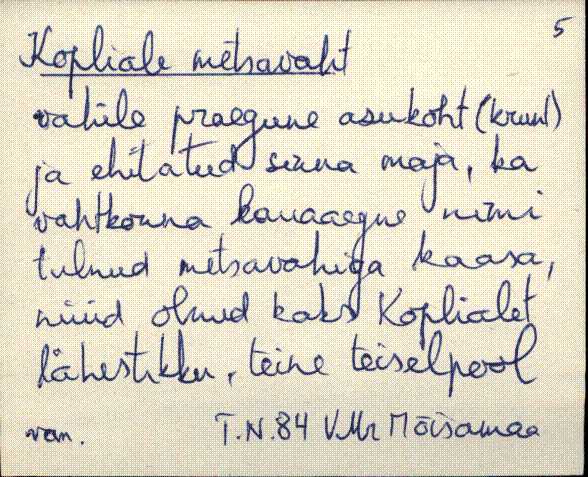 5
Kopliale metsavaht
vahile praegune asukoht (krunt)
ja ehitatud sinna maja, ka
vahtkonna kauaaegne nimi
tulnud metsavahiga kaasa,
nüüd olnud kaks Koplialet
lähestikku, teine teiselpool
van. T.N.84 VMr Mõisamaa